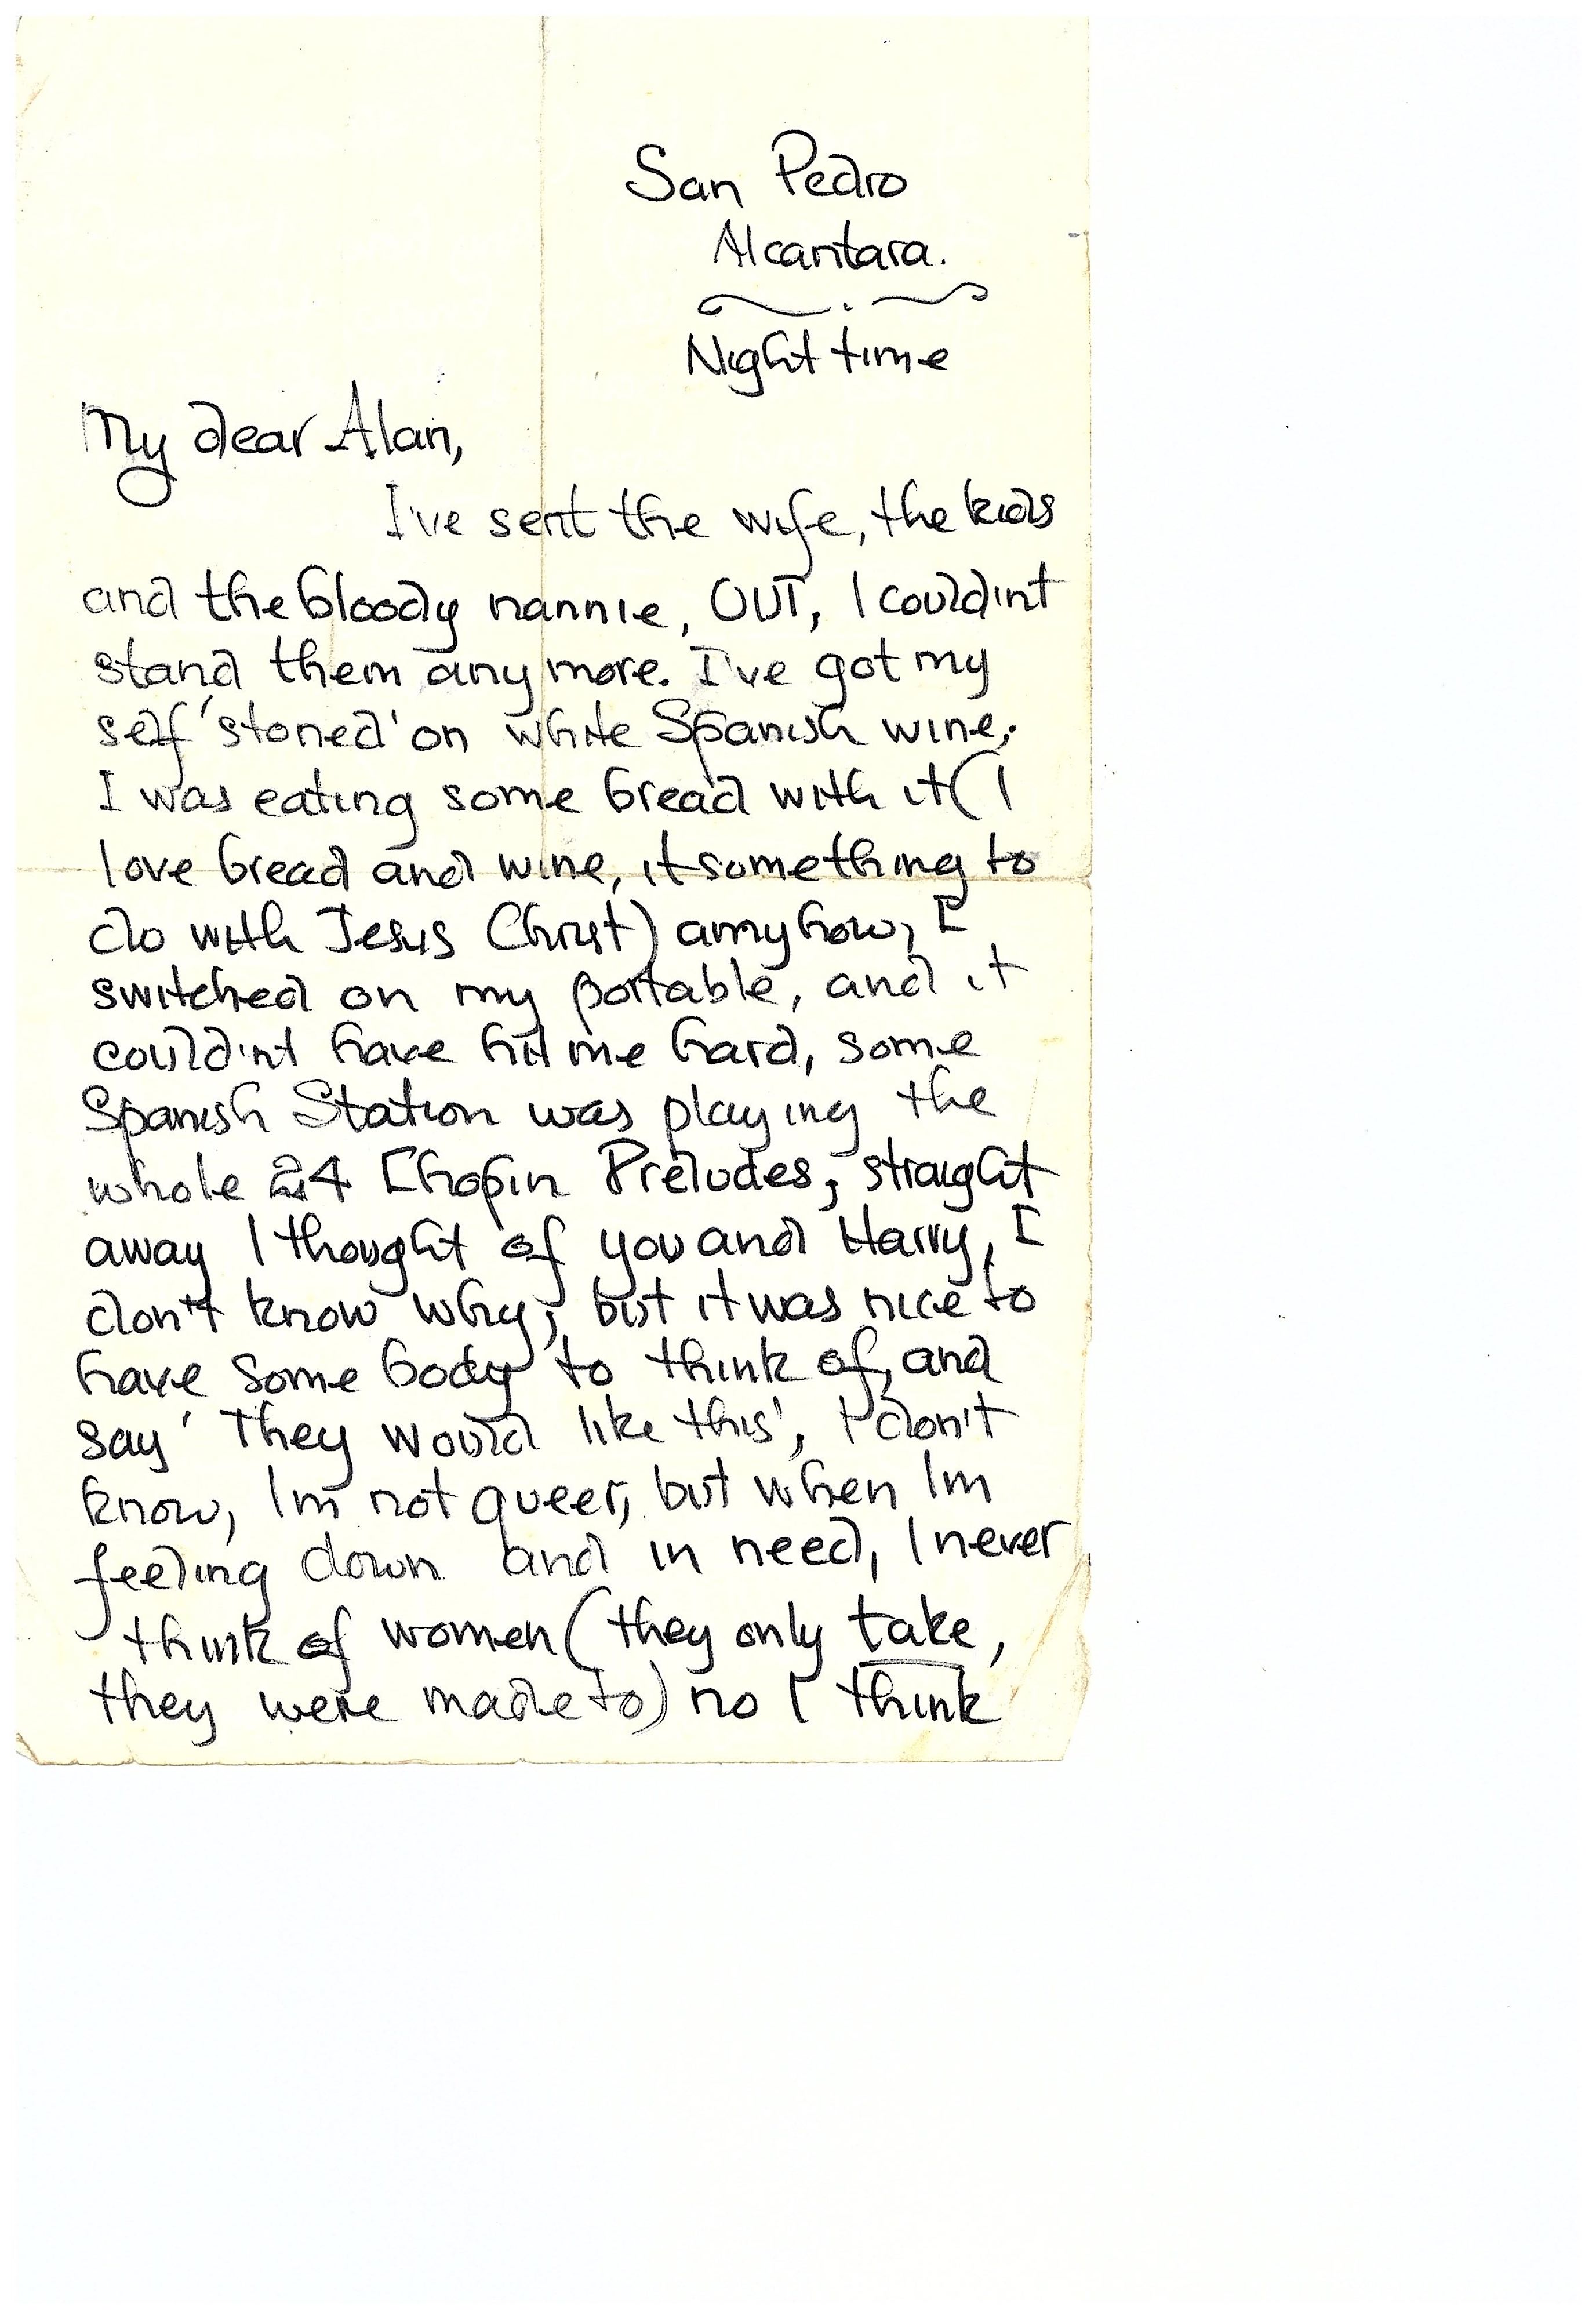 San Pedro
Alcantara.
Night time
My dear Alan,
I've sent the wife, the kids
and the bloody nannie, OUT, I could'nt
stand them any more. I've got my
self 'stoned' on white Spanish wine,.
I was eating some bread with it (I
love bread and wine, it something to
do with Jesus Christ) anyhow, I
switched on my portable, and it
could'nt have hit me hard, some
Spanish Station was playing the
whole 24 Chopin Preludes, straight
away I thought of you and Harry, I
don't know why, but it was nice to
have some body to think of, and
say 'They would like this', I don't
know, Im not queer, but when Im
feeling down and in need, I never
think of women (they only take,
they were made to) no I think